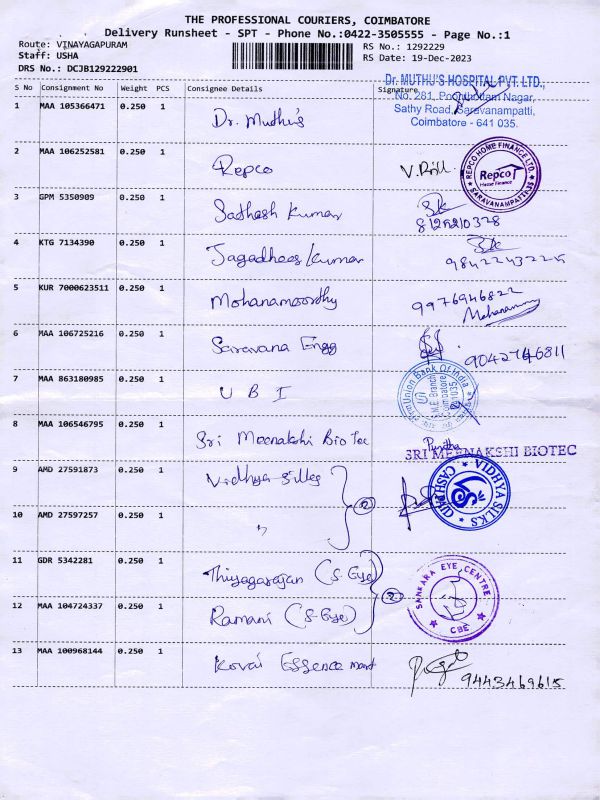 THE PROFESSIONAL COURIERS, COIMBATORE
Delivery Runsheet - SPT - Phone No.:0422-3505555 - Page No.:1
Route: VINAYAGAPURAM
Staff: USHA
DRS No.: DCJB129222901
RS No.: 1292229
RS Date: 19-Dec-2023
S No Consignment No Weight PCS Consignee Details Signature
Dr. MUTHU'S HOSPITAL PVT. LTD.,
No. 281, Poonthottam Nagar,
Sathy Road, Saravanampatti,
Coimbatore - 641 035.
1 MAA 105366471 0.250 1 Dr. Muthu's
2 MAA 106252581 0.250 1 Repco
REPCO HOME FINANCE LTD.
Repco
Home Finance
SARAVANAMPATTI-35
3 GPM 5350909 0.250 1 Sathash Kumar
4 KTG 7134390 0.250 1 Jagadhees Kumar
98422432225
5 KUR 7000623511 0.250 1 Mohanamoorthy 9976946822
6 MAA 106725216 0.250 1 Saravana Engg 9042746811
7 MAA 863180985 0.250 1 U B I
Union Bank Of India
S.M.E. Branch
Coimbatore
641035
8 MAA 106546795 0.250 1 Sri Meenakshi Bio Tec
SRI MEENAKSHI BIOTEC
9 AMD 27591873 0.250 1 Vidhya Silks 2
VIDHYA SILKS
CASH PAID
10 AMD 27597257 0.250 1 "
11 GDR 5342281 0.250 1 Thiyagarajan (S. Eye) 2
SANKARA EYE CENTRE
CBE
12 MAA 104724337 0.250 1 Ramani (S. Eye)
13 MAA 100968144 0.250 1 Kovai Essence mart 9443469615